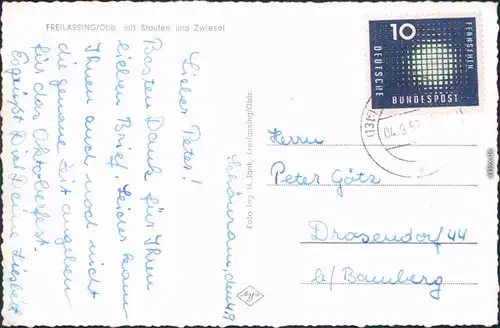 FREILASSING/Obb. mit Staufen und Zwiesel
Schönram, den 4.9.
Lieber Peter!
Besten Dank für Ihren
lieben Brief. Leider kann
Ihnen auch noch nicht
die genaue Zeit angeben
für das Oktoberfest.
Es grüßt Dich Deine Liesbeth
Foto Ing. H. Jank, Freilassing/Obb.
10
FERNSEHEN
DEUTSCHE
BUNDESPOST
04.9.57
Herrn
Peter Götz
Drosendorf 44
b/ Bamberg